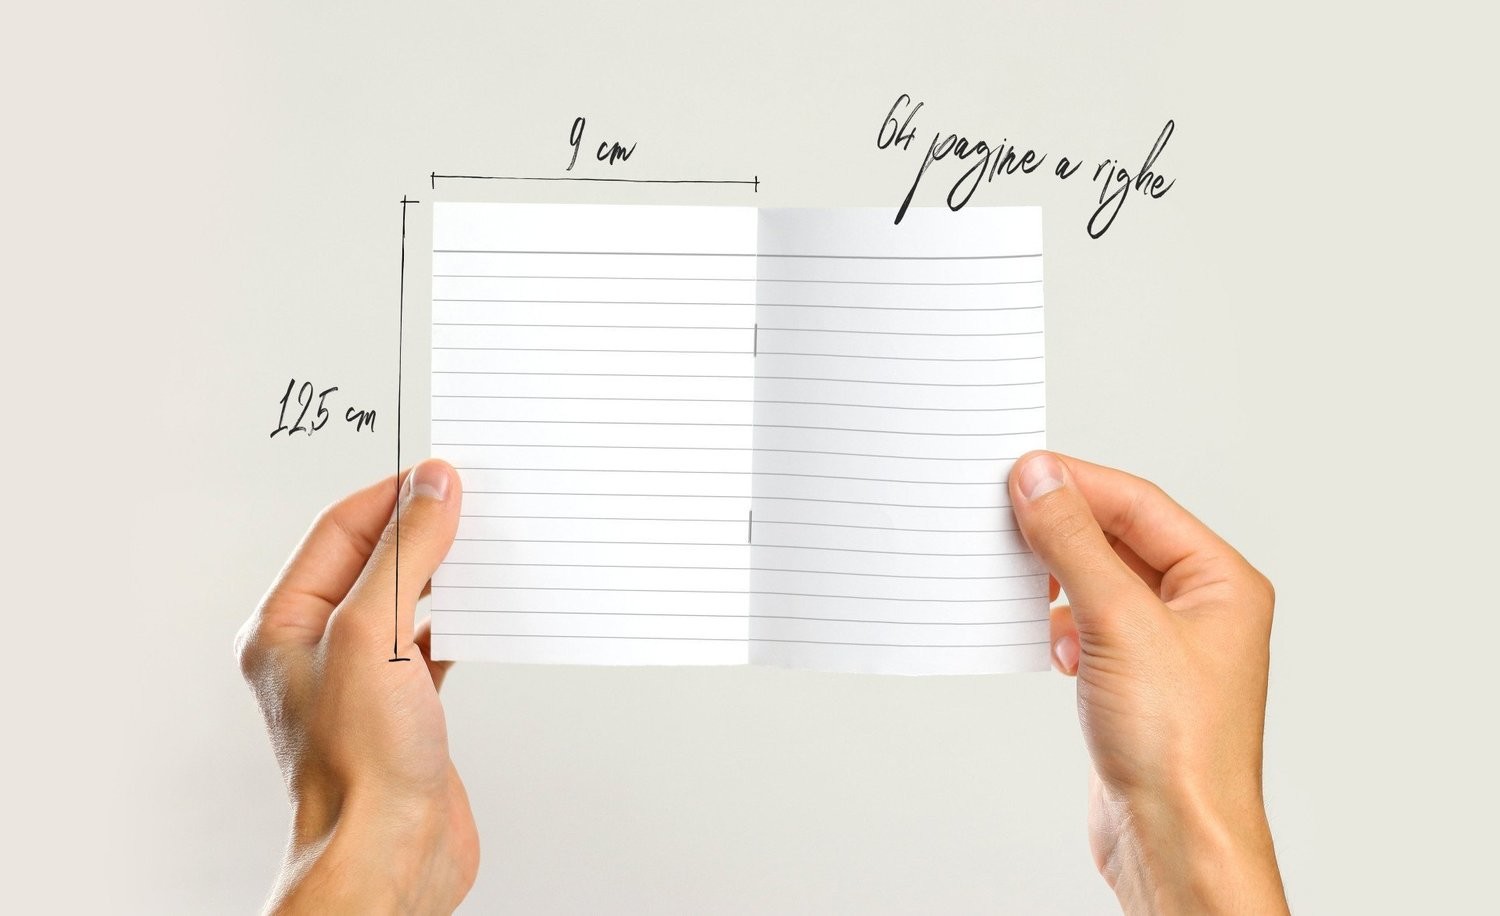 9 cm
64 pagine a righe
12,5 cm